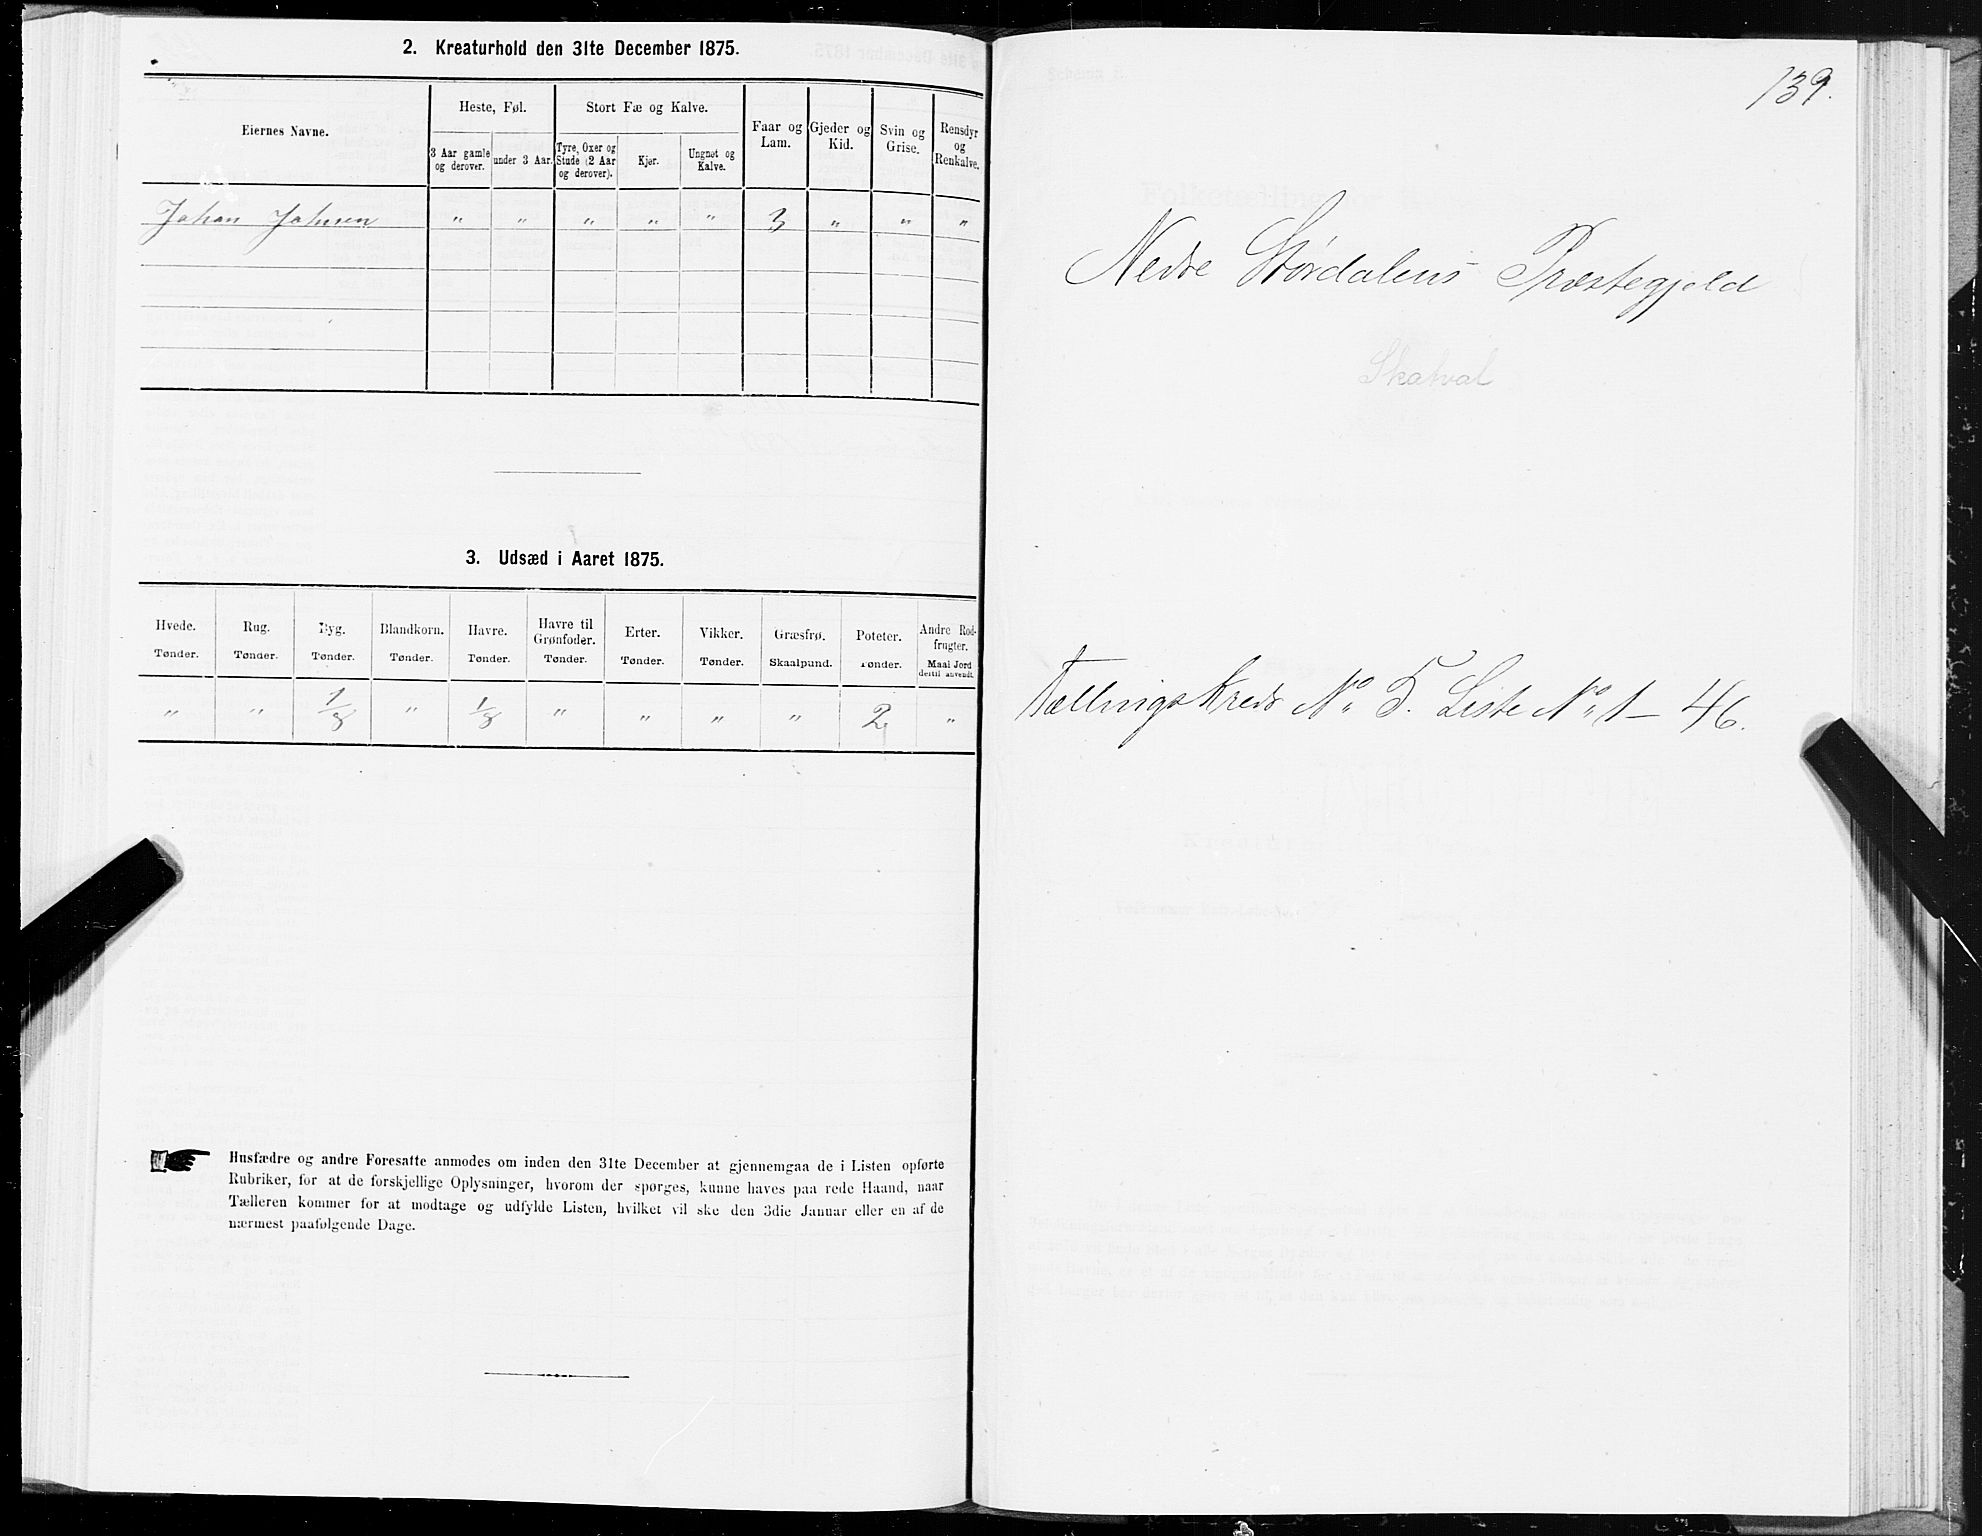 2. Kreaturhold den 31te December 1875.
Eiernes Navne.
Heste, Føl.
3 Aar gamle og derover.
under 3 Aar.
Stort Fæ og Kalve.
Tyre, Oxer og Stude (2 Aar og derover).
Kjør.
Ungnøt og Kalve.
Faar og Lam.
Gjeder og Kid.
Svin og Grise.
Rensdyr og Renkalve.
Johan Johnsen " " " " " 3 " " "
3. Udsæd i Aaret 1875.
Hvede. Rug. Byg. Blandkorn. Havre. Havre til Grønfoder. Erter. Vikker. Græsfrø. Poteter. Andre Rodfrugter.
Tønder. Tønder. Tønder. Tønder. Tønder. Tønder. Tønder. Tønder. Skaalpund. Tønder. Maal Jord dertil anvendt.
" " 1/8 " 1/8 " " " " 2 "
Husfædre og andre Foresatte anmodes om inden den 31te December at gjennemgaa de i Listen opførte
Rubriker, for at de forskjellige Oplysninger, hvorom der spørges, kunne haves paa rede Haand, naar
Tælleren kommer for at modtage og udfylde Listen, hvilket vil ske den 3die Januar eller en af de
nærmest paafølgende Dage.
139.
Nedre Størdalens Præstegjeld
Skatval
Tællingskreds No 5. Liste No 1 – 46.